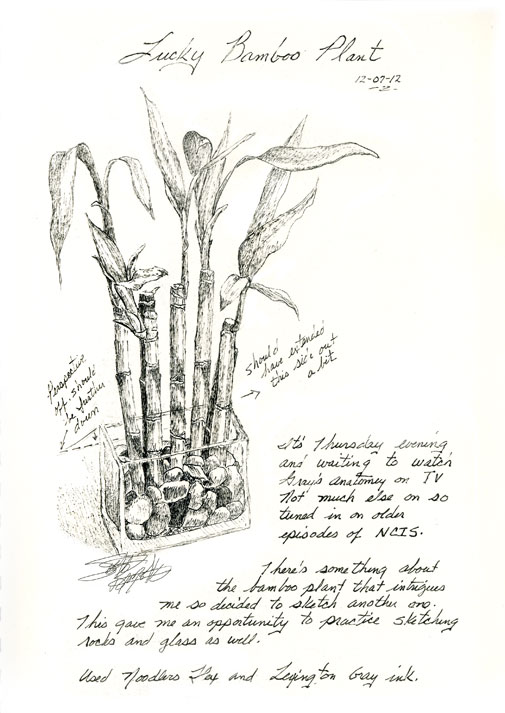 Lucky Bamboo Plant
12-07-12
Should
have extended
this side out
a bit
Perspective
off should
be further
down
It's Thursday evening
and waiting to watch
Gray's anatomey on TV
Not much else on so
tuned in on older
episodes of NCIS.
There's something about
the bamboo plant that intrigues
me so decided to sketch another one.
This gave me an opportunity to practice sketching
rocks and glass as well.
Used Noodlers Flex and Lexington Gray ink.